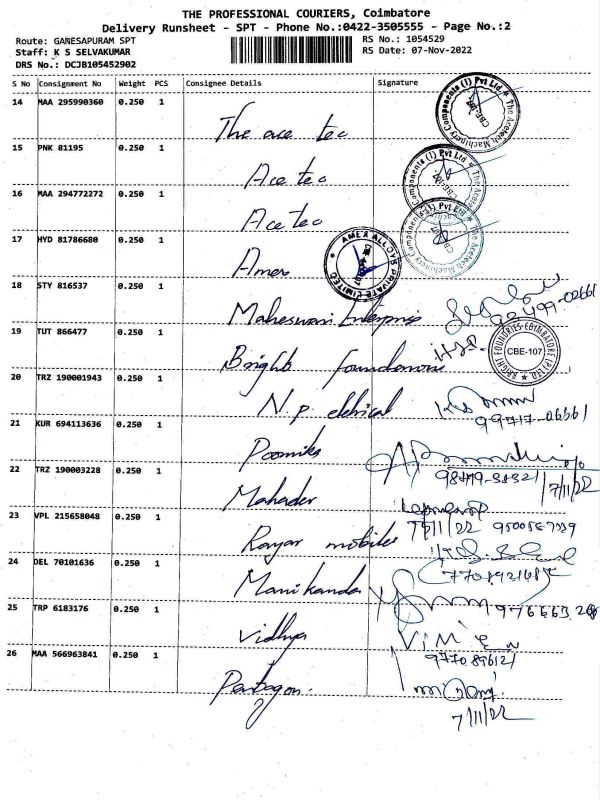 THE PROFESSIONAL COURIERS, Coimbatore
Delivery Runsheet - SPT - Phone No.:0422-3505555 - Page No.:2
Route: GANESAPURAM SPT
RS No.: 1054529
Staff: K S SELVAKUMAR
RS Date: 07-Nov-2022
DRS No.: DCJB105452902
S No Consignment No Weight PCS Consignee Details Signature
14 MAA 295990360 0.250 1 The ace tec
15 PNK 81195 0.250 1 Ace tec
16 MAA 294772272 0.250 1 Ace tec
17 HYD 81786680 0.250 1 Amex
AMEX ALLOYS PRIVATE LIMITED
The Acetech Machinery Components (I) Pvt Ltd
The Acetech Machinery Components (I) Pvt Ltd
The Acetech Machinery Components (I) Pvt Ltd
18 STY 816537 0.250 1 Maheswari Enterprises
19 TUT 866477 0.250 1 Bright
BRIGHT FOUNDRIES-COIMBATORE (P) LTD
CBE-107
20 TRZ 190001943 0.250 1 N.p. eletrical
21 KUR 694113636 0.250 1 Poomika
22 TRZ 190003228 0.250 1 Mahadev
7/11/22
23 VPL 215658048 0.250 1 mobiles
24 DEL 70101636 0.250 1 Manikanda
25 TRP 6183176 0.250 1 Vidhya
26 MAA 566963841 0.250 1 Pentagon.
7/11/22